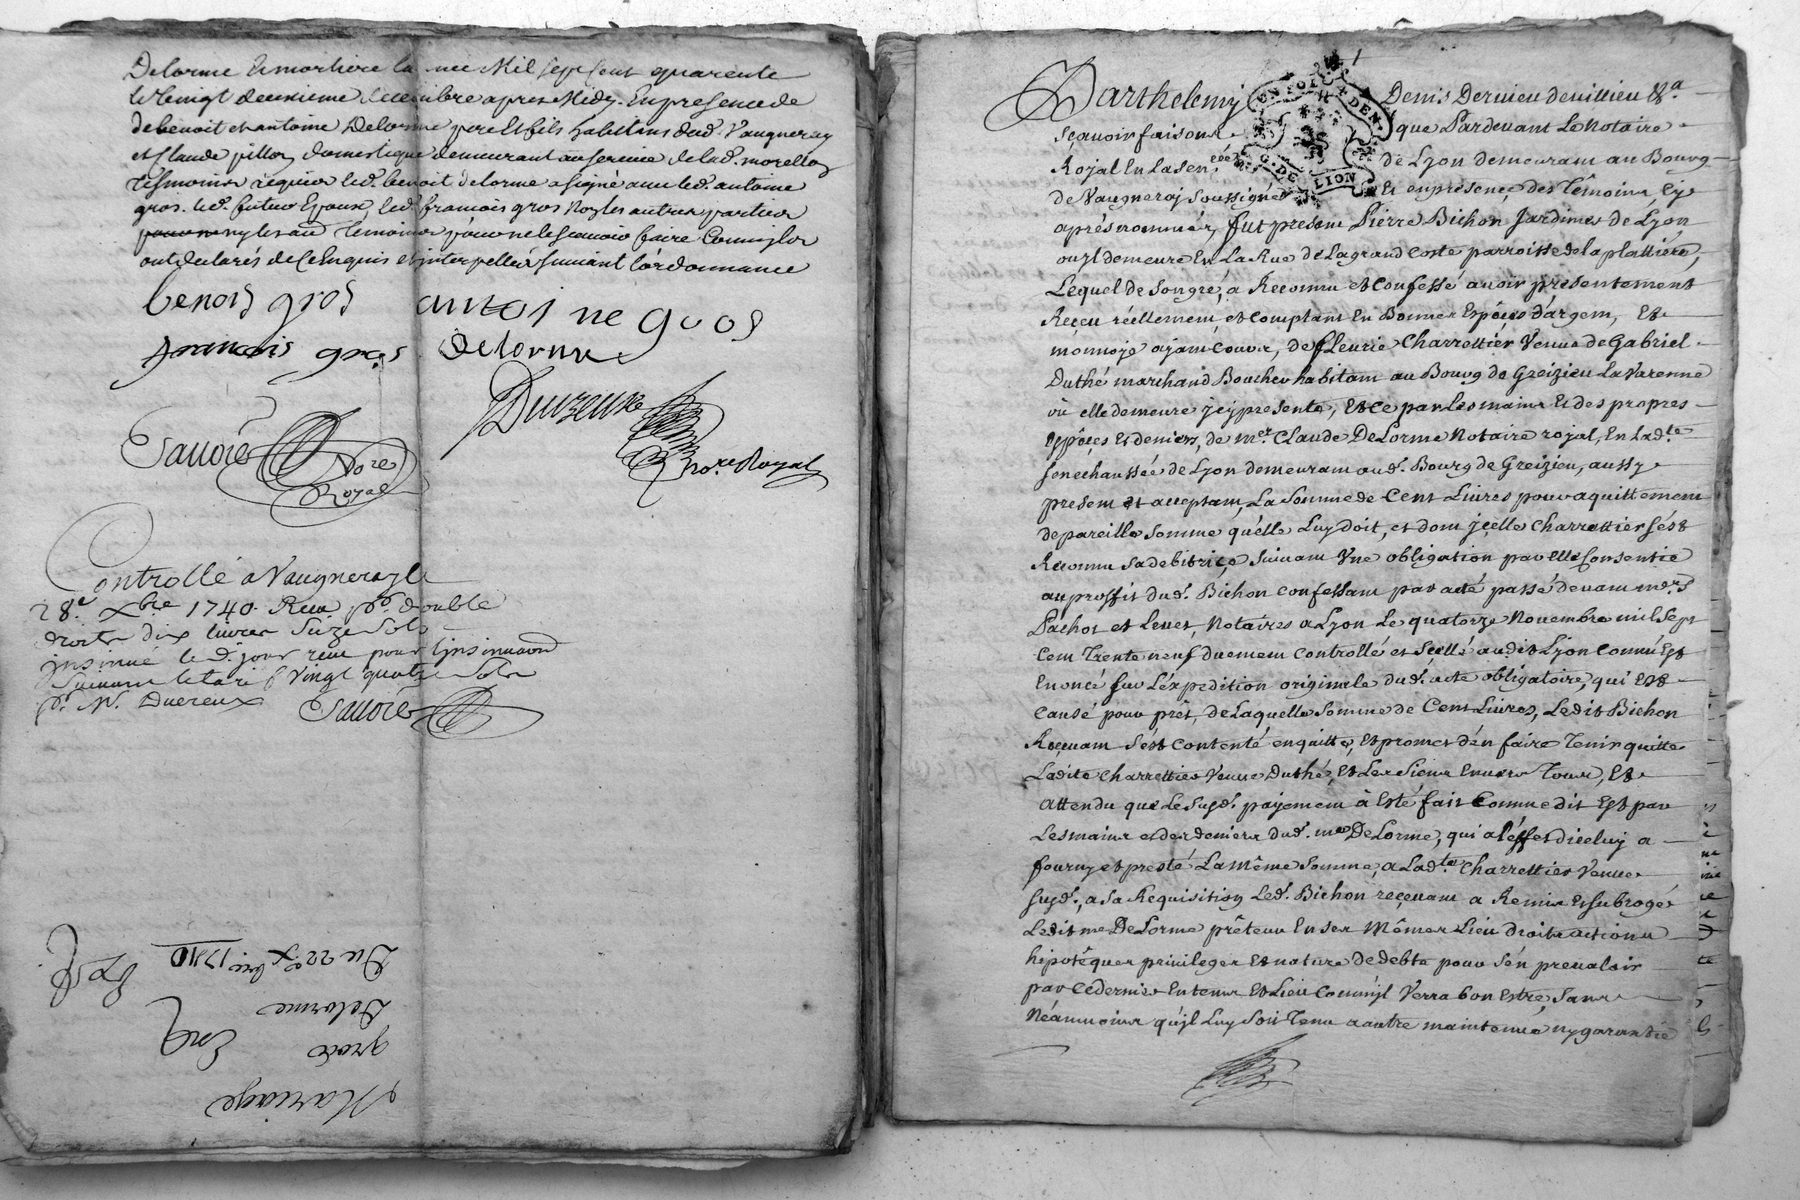 Delorme Estmorhere la nee Mil sept cent quarente
le Vingt deuxieme decembre apres Midy. En presence de
de benoit et antoine Delorme pere et fils habittans dud. Vaugneray
et Claude pillon domestique demeurant au service de lad. morellon
tesmoins requis led. benoit delorme a signé avec led. antoine
gros. led. futur Epoux, led. francois gros Non les autres parties
ny lesd. Temoins pour ne le scavoir faire Commils
ont declarés de ce Enquis et interpellés suivant l'ordonnance
benois gros antoine gros
francois gros Delorme
Ducreux
Savoie Nore Royal
no.re Royal
Controllé a Vaugneray le
28.e Xbre 1740. Receu pr. double
droits dix livres Seize Sols
Insinué le d. jour receu pour l'insinuaon
Suivant le tarif Vingt quatre Sols
pr. Mr. Ducreux Savoie
Du 22e Xbre 1740
Delorme
gros
Mariage
1
GEN. DE LION
Barthelemy Denis Dervieu de Villieu &a
Sçavoir faisons que Pardevant Le Notaire
Royal En La Sen.cée de Lyon demeurant au Bourg
de Vaugneray Soussigné Et en présence des Témoins Cy
aprés nommés, fut present Pierre Bichon Jardinier de Lyon
ou Jl demeure En La Rue de Lagrand Coste parroisse de la plattiére,
Lequel de Son gré, a Reconnu et Confessé avoir presentement
Reçeu réellement, et Comptant En Bonnes Espéces d'argent, Et
monnoye ayant Cours, de fleurie Charrettier Veuve de Gabriel
Duthé marchand Boucher habitant au Bourg de Greizieu La Varenne
où elle demeure jcy presente, Et Ce par les mains Et des propres
Espéces Et deniers, de me.r Claude DeLorme Notaire royal, En Lad.te
Senechaussée de Lyon demeurant aud. Bourg de Greizieu, aussy
present et acceptant, La Somme de Cent Livres pour aquittement
de pareille Somme qu'elle Luy doit, et dont jçelle Charrettier s'est
Reconnu Sa debitrice Suivant Vne obligation par Elle Consentie
au proffit dud. Bichon Confessant par acte passé devant m.ers
Pachot et Levet, Notaires a Lyon Le quatorze Novembre mil Sept
Cent Trente neuf duement Controllé et Scellé audit Lyon Comm' Est
Enoncé Sur L'éxpedition originale dud. acte obligatoire, qui Est
Causé pour prêt, de Laquelle Somme de Cent Livres, Ledit Bichon
Reçevant s'est Contenté en quitte, Et promet d'en faire Tenir quitte
Ladite Charrettier Veuve Duthé, Et Les Siens Envers Tous, Et
attendu que Le Susd. payement à Esté fait Comme dit Est par
Les mains et des deniers dud. me DeLorme, qui a L'éffet d'iceluy a
fourny et presté La même Somme, a Lad.te Charrettier Veuve
Susd., a Sa Requisition Led. Bichon reçevant a Remis Et Subrogé
Ledit me DeLorme prêteur En Ses mêmes Lieu droits actions
hipotêques privileges Et nature de debte pour S'en prevaloir
par Ce dernier En tems Et Lieu Comm'jl Verra bon Estre, Sans
Néanmoins qu'jl Luy Soit Tenu a autre maintenue ny garantie